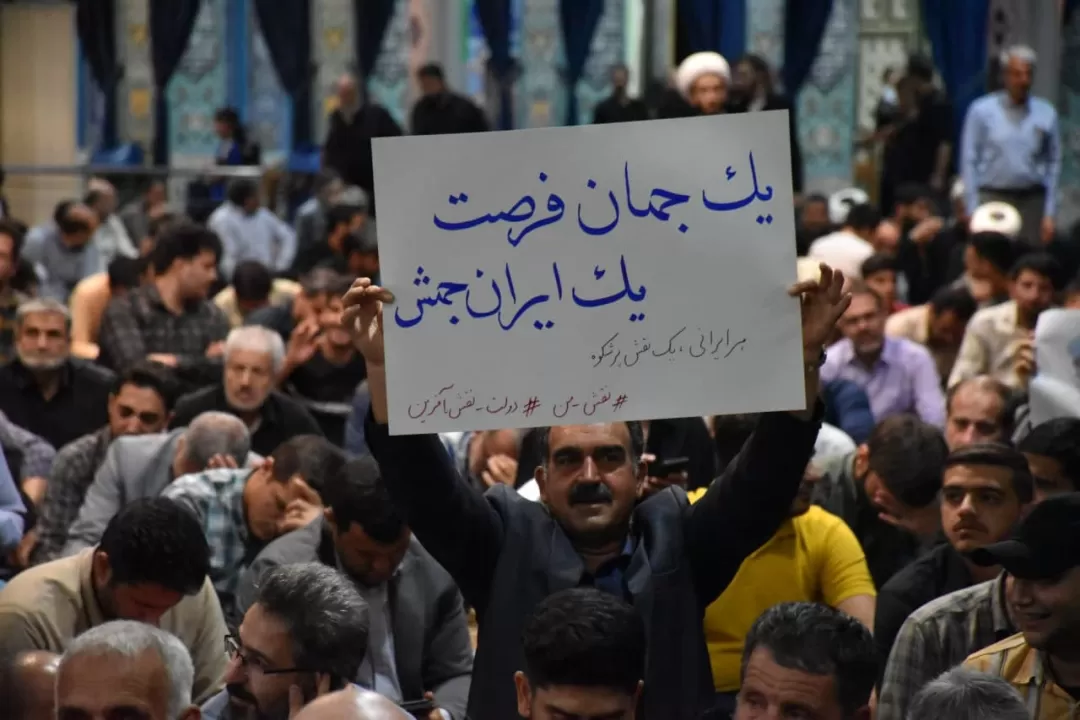 یک جهان فرصت
یک ایران جهش
هر ایرانی، یک نقش پرشکوه
#نقش_من #دولت_نقش_آفرین